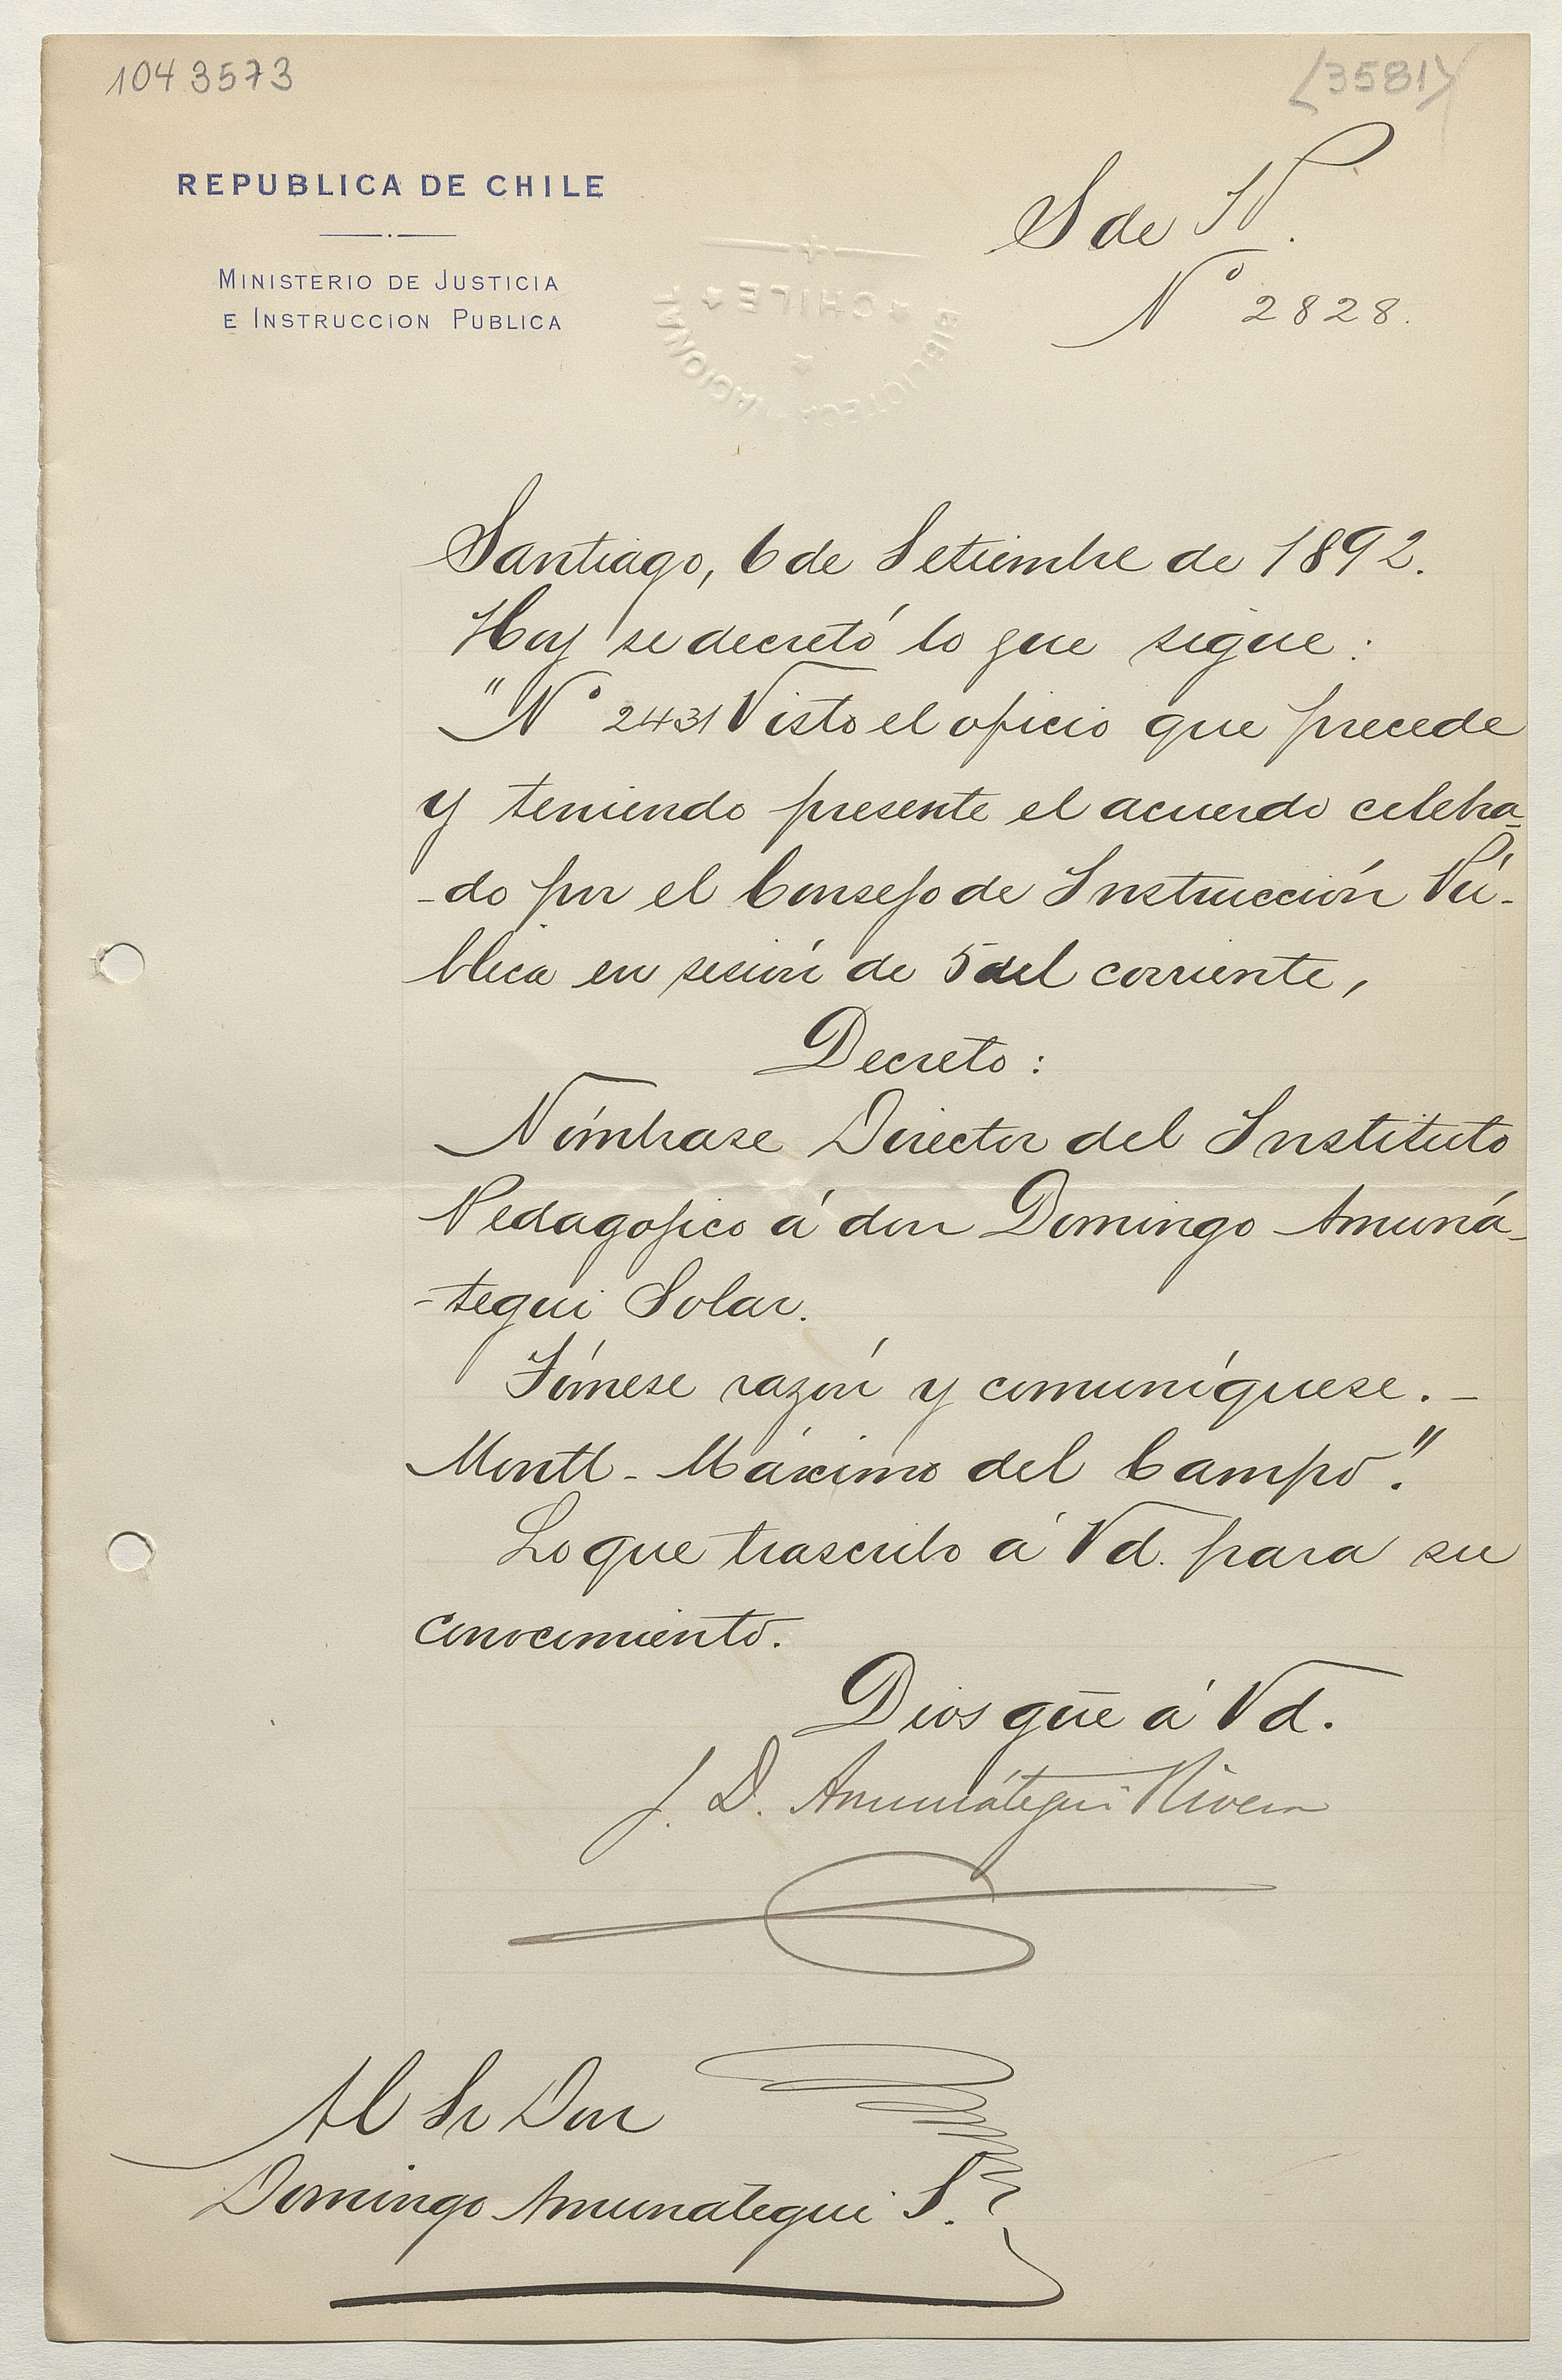 1043573
<3581>
REPUBLICA DE CHILE
MINISTERIO DE JUSTICIA
E INSTRUCCION PUBLICA
S de IP.
Nº 2828.
BIBLIOTECA NACIONAL
CHILE
Santiago, 6 de Setiembre de 1892.
Hoy se decretó lo que sigue:
"Nº 2431 Visto el oficio que precede
y teniendo presente el acuerdo celebra-
-do por el Consejo de Instrucción Pú-
blica en sesión de 5 del corriente,
Decreto:
Nómbrase Director del Instituto
Pedagojico á don Domingo Amuná-
-tegui Solar.
Tómese razón y comuníquese.-
Montt - Máximo del Campo."
Lo que trascribo á Vd. para su
conocimiento.
Dios gue á Vd.
J. D. Amunátegui Rivera
Al Sr Don
Domingo Amunategui S.